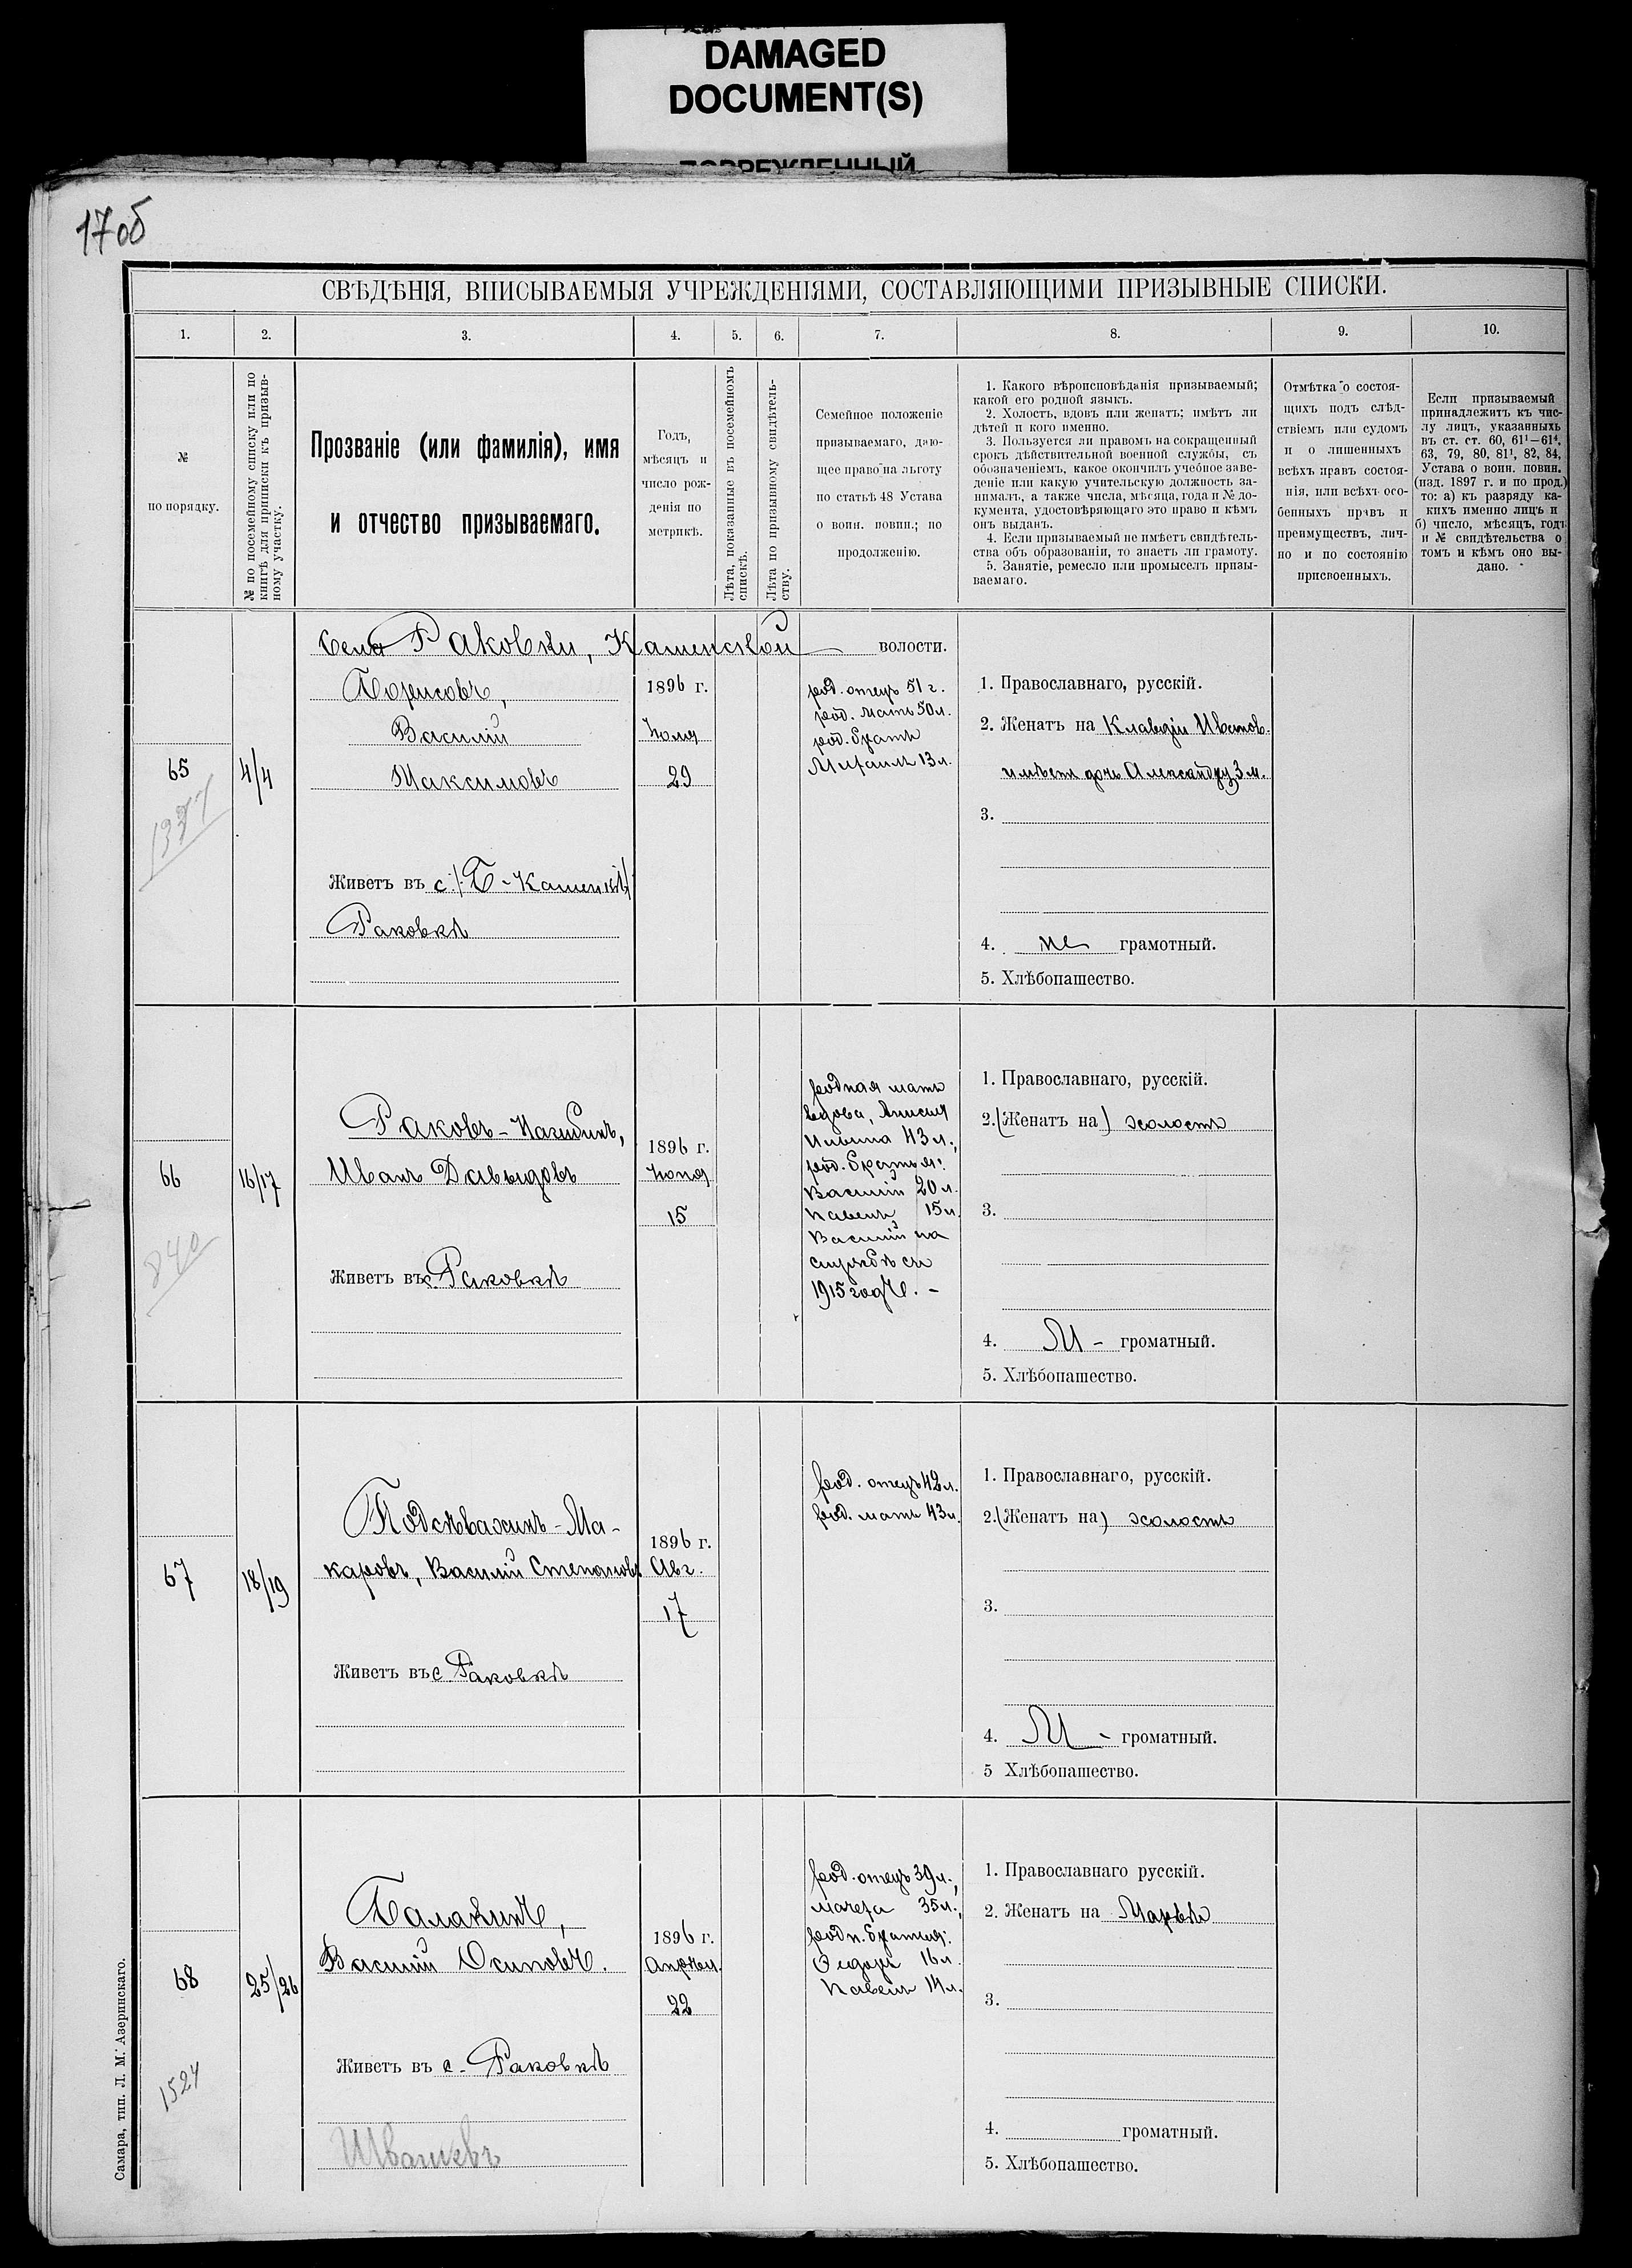 DAMAGED
DOCUMENT(S)
ПОВРЕЖДЕННЫЙ
17об
СВѢДѢНІЯ, ВПИСЫВАЕМЫЯ УЧРЕЖДЕНІЯМИ, СОСТАВЛЯЮЩИМИ ПРИЗЫВНЫЕ СПИСКИ.
1. 2. 3. 4. 5. 6. 7. 8. 9. 10.
№
по порядку.
№ по посемейному списку или по
книгѣ для приписки къ призыв-
ному участку.
Прозваніе (или фамилія), имя
и отчество призываемаго.
Годъ,
мѣсяцъ и
число рож-
денія по
метрикѣ.
Лѣта, показанные въ посемейномъ
спискѣ.
Лѣта по призывному свидѣтель-
ству.
Семейное положеніе
призываемаго, даю-
щее право на льготу
по статьѣ 48 Устава
о воин. повин.; по
продолженію.
1. Какого вѣроисповѣданія призываемый;
какой его родной языкъ.
2. Холостъ, вдовъ или женатъ; имѣтъ ли
дѣтей и кого именно.
3. Пользуется ли правомъ на сокращенный
срокъ дѣйствительной военной службы, съ
обозначеніемъ, какое окончилъ учебное заве-
деніе или какую учительскую должность за-
нималъ, а также числа, мѣсяца, года и № до-
кумента, удостовѣряющаго это право и кѣмъ
онъ выданъ.
4. Если призываемый не имѣетъ свидѣтель-
ства объ образованіи, то знаетъ ли грамоту.
5. Занятіе, ремесло или промыселъ призы-
ваемаго.
Отмѣтка о состоя-
щихъ подъ слѣд-
ствіемъ или судомъ
и о лишенныхъ
всѣхъ правъ состоя-
нія, или всѣхъ осо-
бенныхъ правъ и
преимуществъ, лич-
но и по состоянію
присвоенныхъ.
Если призываемый
принадлежитъ къ чис-
лу лицъ, указанныхъ
въ ст. ст. 60, 61¹—61⁴,
63, 79, 80, 81¹, 82, 84,
Устава о воин. повин.
(изд. 1897 г. и по прод.)
то: а) къ разряду ка-
кихъ именно лицъ и
б) число, мѣсяцъ, годъ
и № свидѣтельства о
томъ и кѣмъ оно вы-
дано.
Села Раковки, Каменской волости.
65
4/4
Борисовъ,
Василій
Максимовъ
Живетъ въ с. /Б-Каменкѣ/
Раковкѣ
1896 г.
Іюля
29
род. отецъ 51 г.
род. мать 50 л.
род. братъ
Михаилъ 13 л.
1. Православнаго, русскій.
2. Женатъ на Клавдіи Иванов.
имѣетъ дочь Александру 3 м.
3.
4. не грамотный.
5. Хлѣбопашество.
66
840
16/17
Раковъ-
Иванъ Давыдовъ
Живетъ въ с. Раковкѣ
1896 г.
15
родная мать
вдова, Анисья
Ильина 43 л.,
род. братья:
Василій 20 л.
Павелъ 15 л.
Василій на
службѣ съ
1915 года. -
1. Православнаго, русскій.
2. (Женатъ на) холостъ
3.
4. М - громатный.
5. Хлѣбопашество.
67
18/19
Подсѣвахинъ-Ма-
каровъ, Василій Степановъ
Живетъ въ с. Раковкѣ
1896 г.
Авг.
17
род. отецъ 42 л.
род. мать 43 л.
1. Православнаго, русскій.
2. (Женатъ на) холостъ
3.
4. М - громатный.
5 Хлѣбопашество.
68
1524
25/26
Балакинъ,
Василій Осиповъ.
Живетъ въ с. Раковкѣ
1896 г.
Апрѣля
22
род. отецъ 39 л.,
мачеха 35 л.,
родн. братья:
Ѳедоръ 16 л.
Павелъ 14 л.
1. Православнаго русскій.
2. Женатъ на Марьѣ
3.
4. громатный.
5. Хлѣбопашество.
Самара, тип. Л. М. Азеринскаго.